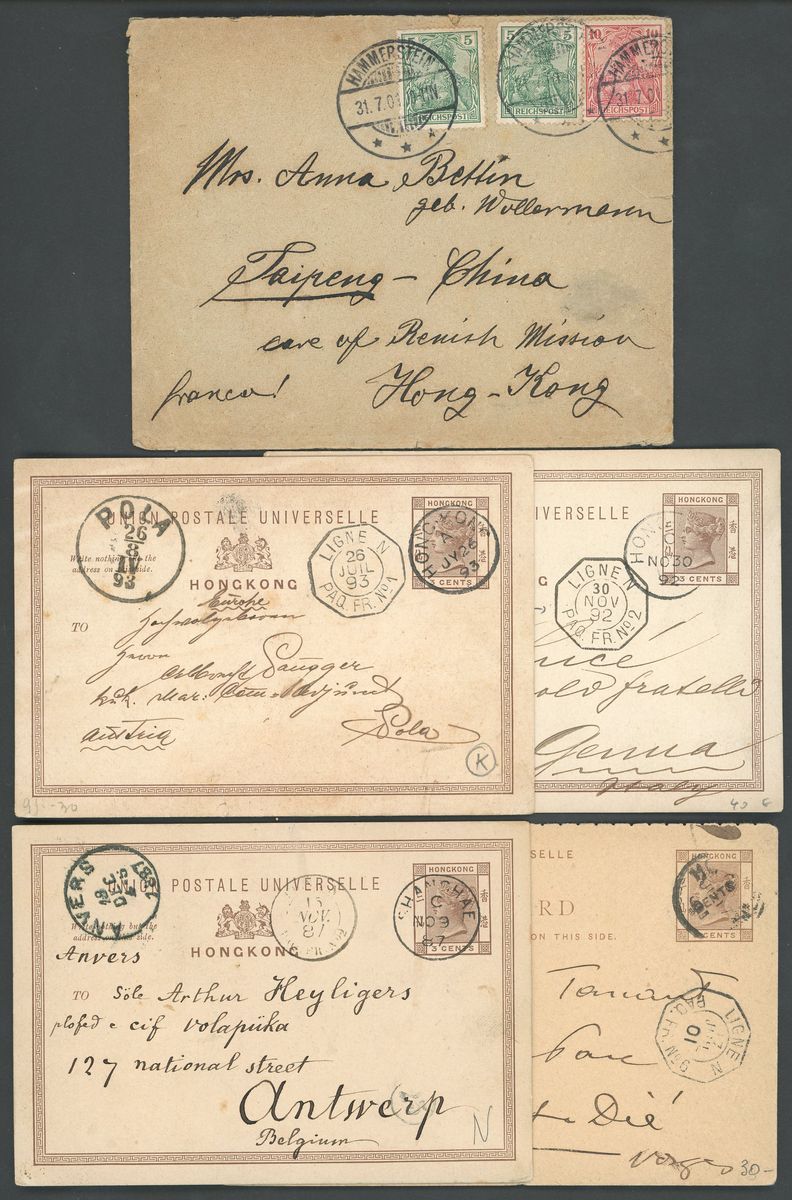 HAMMERSTEIN
31.7.01
5
REICHSPOST
5
REICHSPOST
10
REICHSPOST
HAMMERSTEIN
31.7.01
Mrs. Anna Bettin
geb. Wollermann
Taipeng - China
care of Renish Mission
franco!
Hong-Kong
UNION POSTALE UNIVERSELLE
Write nothing but the
address on this side.
HONGKONG
TO
POLA
26
8
93
LIGNE N
26
JUIL
93
PAQ. FR. No 1
HONGKONG
3 CENTS
香港
HONG KONG
A
JY 26
93
Europe
Hochwolgeboren
Herrn
k.u.k. Mar:
Austria
Pola
K
30
VERSELLE
HONGKONG
3 CENTS
香港
NO 30
92
LIGNE N
30
NOV
92
PAQ. FR. No 2
fratelli
Genua
Italy
40 €
UNION POSTALE UNIVERSELLE
Write nothing but the
address on this side.
HONGKONG
TO
ANVERS
1887
NOV
87
PAQ. FR. No 2
HONGKONG
3 CENTS
香港
SHANGHAE
C
NO 9
87
Anvers
Söle Arthur Heyligers
plofed e cif volapüka
127 national street
Antwerp
Belgium
N
RSELLE
RD
ON THIS SIDE.
HONGKONG
CENTS
LIGNE N
01
PAQ. FR. No 6
Dié
30-